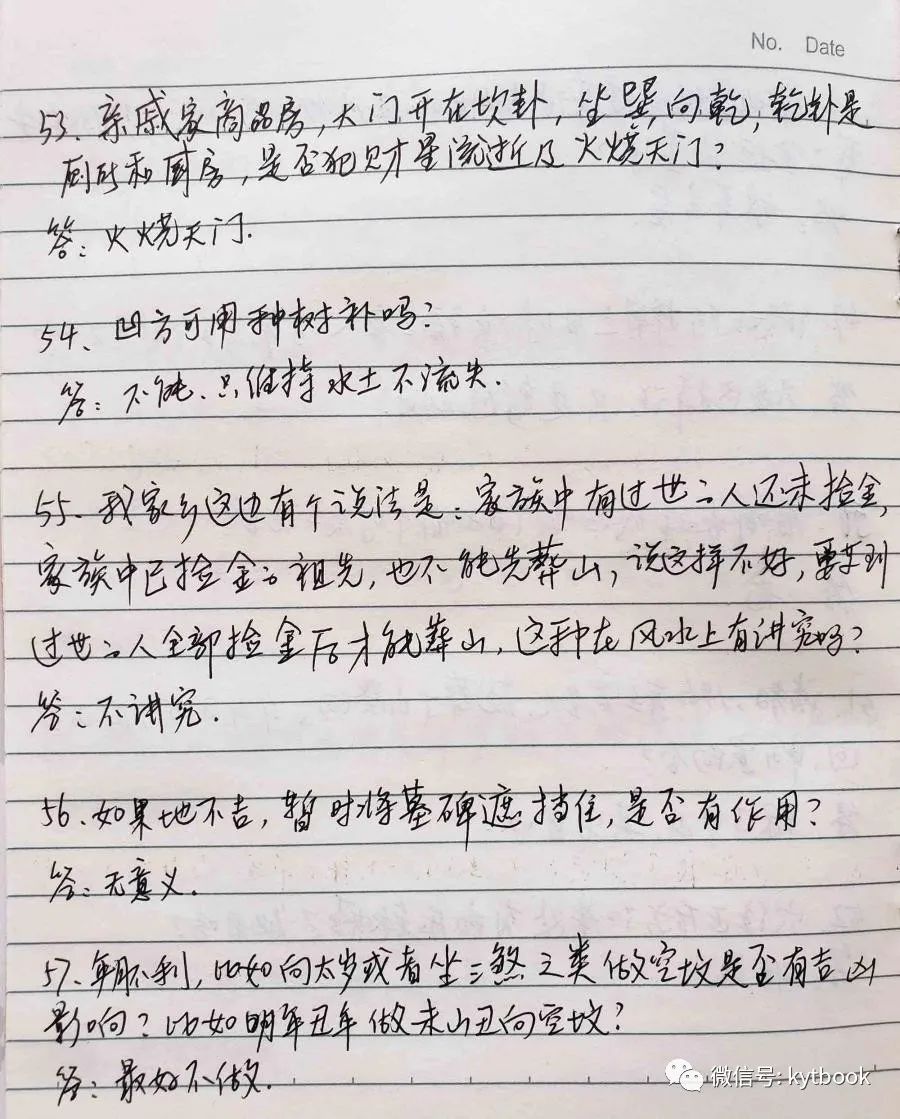 No. Date
53、亲戚家商品房,大门开在坎卦,坐巽向乾,乾卦是
厕所和厨房,是否犯财星流逝及火烧天门?
答:火烧天门.
54、凹方可用种树补吗?
答:不能、只维持水土不流失.
55、我家乡这边有个说法是:家族中有过世之人还未捡金,
家族中已捡金的祖先,也不能先葬山,说这样不好,要等到
过世之人全部捡金后才能葬山,这种在风水上有讲究吗?
答:不讲究.
56、如果地不吉,暂时将墓碑遮挡住,是否有作用?
答:无意义.
57、年月不利,比如向太岁或者坐三煞之类做空坟是否有吉凶
影响?比如明年丑年做未山丑向空坟?
答:最好不做.
微信号: kytbook